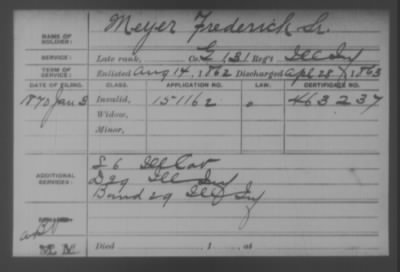 NAME OF SOLDIER: Meyer Frederick Sr.
SERVICE: Late rank, Co. G, 131 Reg't Ill Inf
TERM OF SERVICE: Enlisted Aug 14, 1862 Discharged Apl 28, 1863
DATE OF FILING. CLASS. APPLICATION NO. LAW. CERTIFICATE NO.
1870 Jan 3 Invalid, 151162 463237
Widow,
Minor,
ADDITIONAL SERVICES: L 6 Ill Cav
D 29 Ill Inf
Band 29 Ill Inf
Died , 1 , at